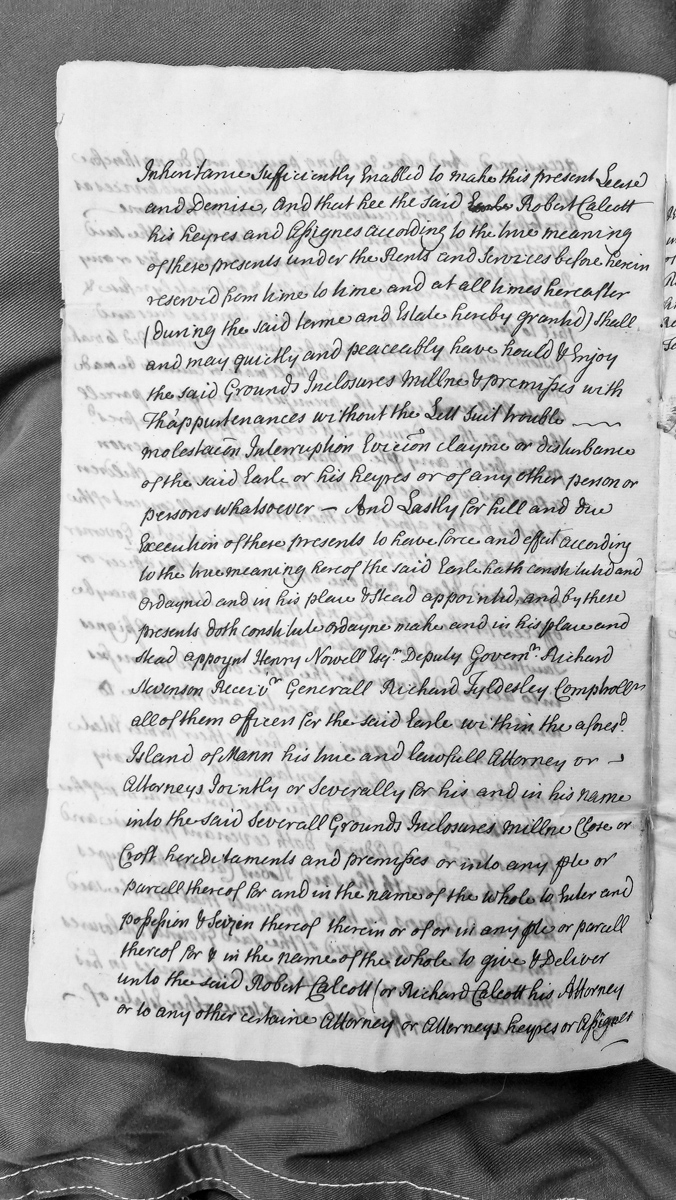 Inheritance sufficiently Enabled to make this present Lease
and Demise, And that hee the said Robert Calcott
his heyres and Assignes according to the true meaning
of these presents under the Rents and Services before herein
reserved from time to time and at all times hereafter
(During the said terme and Estate hereby granted) shall
and may quietly and peaceably have hould & Enjoy
the said Grounds Inclosures Millne & premisses with
Th'appurtenances without the Lett suit trouble
molestacōn Interruption Eviccōn clayme or disturbance
of the said Earle or his heyres or of any other person or
persons whatsoever — And Lastly for full and due
Execution of these presents to have force and effect according
to the true meaning hereof the said Earle hath constituted and
Ordayned and in his place & stead appointed, and by these
presents doth constitute Ordayne make and in his place and
stead appoynt Henry Nowell Esqr. Deputy Governr. Richard
Stevenson Receivr Generall Richard Tyldesley Comptrollr
all of them officers for the said Earle within the afresd.
Island of Mann his true and lawfull Attorney or
Attorneys Jointly or Severally for his and in his name
into the said Severall Grounds Inclosures Millne Close or
Croft hereditaments and premisses or into any ple or
Parcell thereof for and in the name of the whole to Enter and
possession & Seizin thereof therein or of or in any ple or parcell
thereof for & in the name of the whole to give & Deliver
unto the said Robert Calcott (or Richard Calcott his Attorney
or to any other certaine Attorney or Attorneys heyres or Assignes